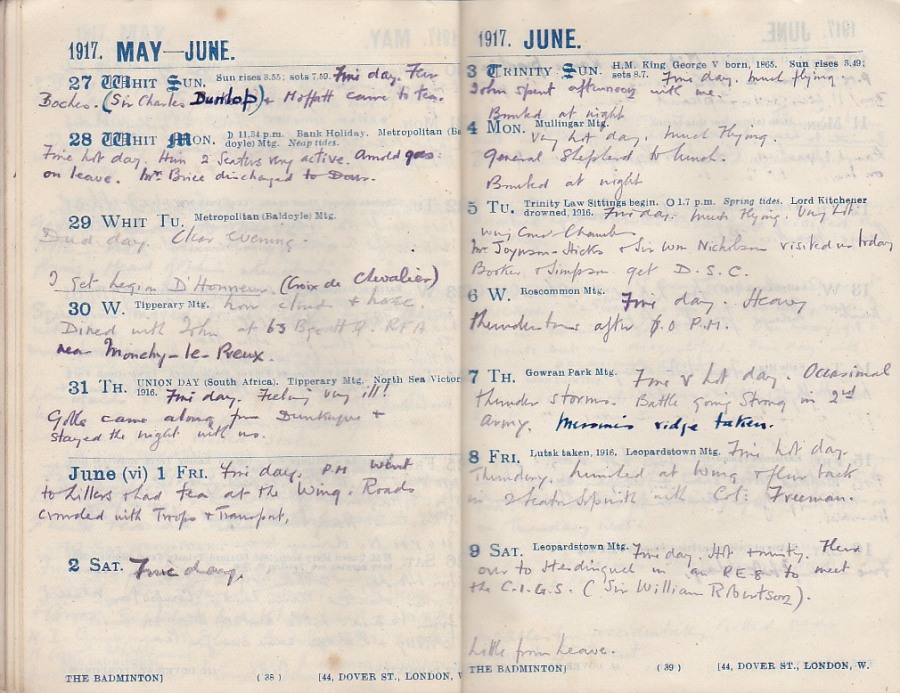 1917. MAY—JUNE.
27 WHIT SUN. Sun rises 3.55; sets 7.59. Fine day. Few
Boches. (Sir Charles Dunlop) + Moffatt came to tea.
28 WHIT MON. ☽ 11.34 p.m. Bank Holiday. Metropolitan (Ba
doyle) Mtg. Neap tides.
Fine hot day. Hun 2 seaters very active. Arnold goes
on leave. Mr Brice discharged to
29 WHIT TU. Metropolitan (Baldoyle) Mtg.
Dud day. Clear evening.
I get Legion D'Honneur. (Croix de Chevalier)
30 W. Tipperary Mtg. low cloud + haze
Dined with John at 63 RFA
near Monchy-le-Preux.
31 TH. UNION DAY (South Africa). Tipperary Mtg. North Sea Victor
1916. Fine day. Feeling very ill!
came along from Dunkerque +
stayed the night with us.
June (vi) 1 FRI. Fine day. P.M. went
to Lillers + had tea at the Wing. Roads
crowded with Troops + Transport.
2 SAT. Fine day.
THE BADMINTON] (38) [44, DOVER ST., LONDON, W
1917. JUNE.
3 TRINITY SUN. H.M. King George V born, 1865. Sun rises 3.49;
sets 8.7. Fine day. Much flying.
John spent afternoon with me.
Bombed at night
4 MON. Mullingar Mtg.
Very hot day. Much Flying.
General Shepherd to lunch.
Bombed at night
5 TU. Trinity Law Sittings begin. ○ 1.7 p.m. Spring tides. Lord Kitchener
drowned, 1916. Fine day. Much Flying. Very hot.
Mr Joynson-Hicks + Sir Wm Nicholson visited us today
Booker + Simpson get D.S.C.
6 W. Roscommon Mtg. Fine day. Heavy
thunderstorms after 6.0 P.M.
7 TH. Gowran Park Mtg. Fine v hot day. Occasional
thunder storms. Battle going strong in 2nd
Army. Messines ridge taken.
8 FRI. Lutsk taken, 1916. Leopardstown Mtg. Fine hot day.
Thundery. Lunched at Wing + flew back
in 2 seater Sopwith with Col: Freeman.
9 SAT. Leopardstown Mtg. Fine day. Hot + misty. Flew
over to in an R.E.8 to meet
the C.I.G.S. (Sir William Robertson).
Little from leave.
THE BADMINTON] (39) [44, DOVER ST., LONDON, W.